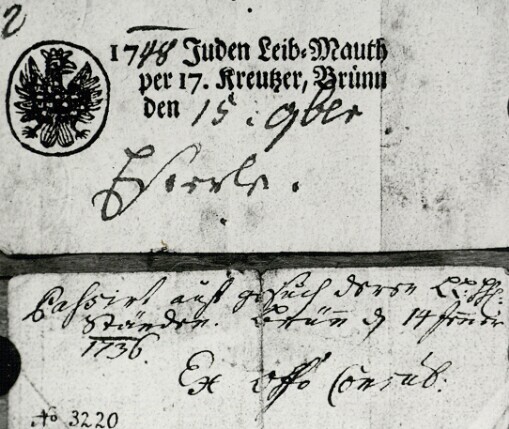 2
1748 Juden Leib=Mauth
per 17. Kreutzer, Brünn
den 15. 9ber
Passirt auff gesuch deren
Ständen. Brünn d 14
1736.
Ex offo
No 3220